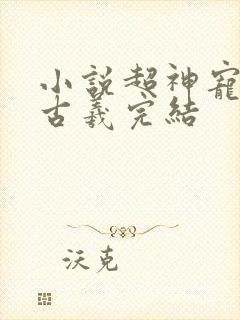 小説超神寵
古羲完結
沃克